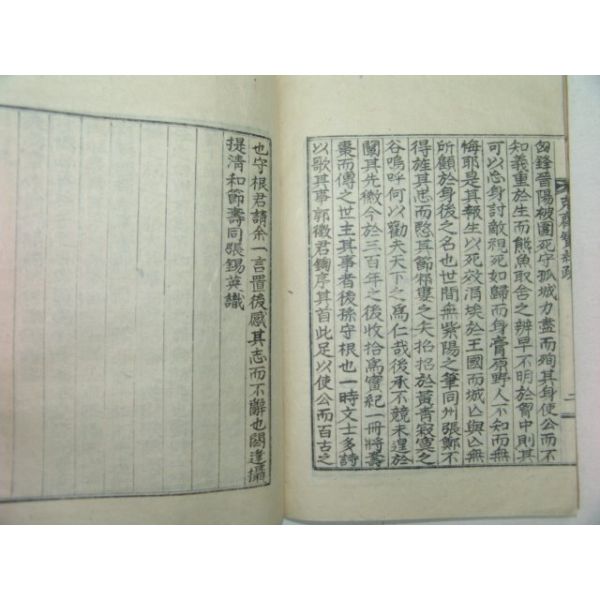 匈鋒晉陽被圍死守孤城力盡而殉其身使公而不
知義重於生而熊魚取舍之辨早不明於胷中則其
可以忘身討敵視死如歸而身膏原野人不知而無
悔耶是其報生以死效涓埃於王國而城亡與亡無
所顧於身後之名也世間無紫陽之筆同州張鄭不
得旌其忠而愍其節精靈之矢招招於黃青寂寞之
谷嗚呼何以勸夫天下之爲仁哉後承不競未遑於
闡其先徽今於三百年之後收拾爲實紀一冊將壽
棗而傳之世主其事者後孫守根也一時文士多詩
以歌其事郭徵君鍾序其首此足以使公而百古之
也守根君請余一言置後感其志而不辭也閼逢攝
提清和節壽同張錫英識